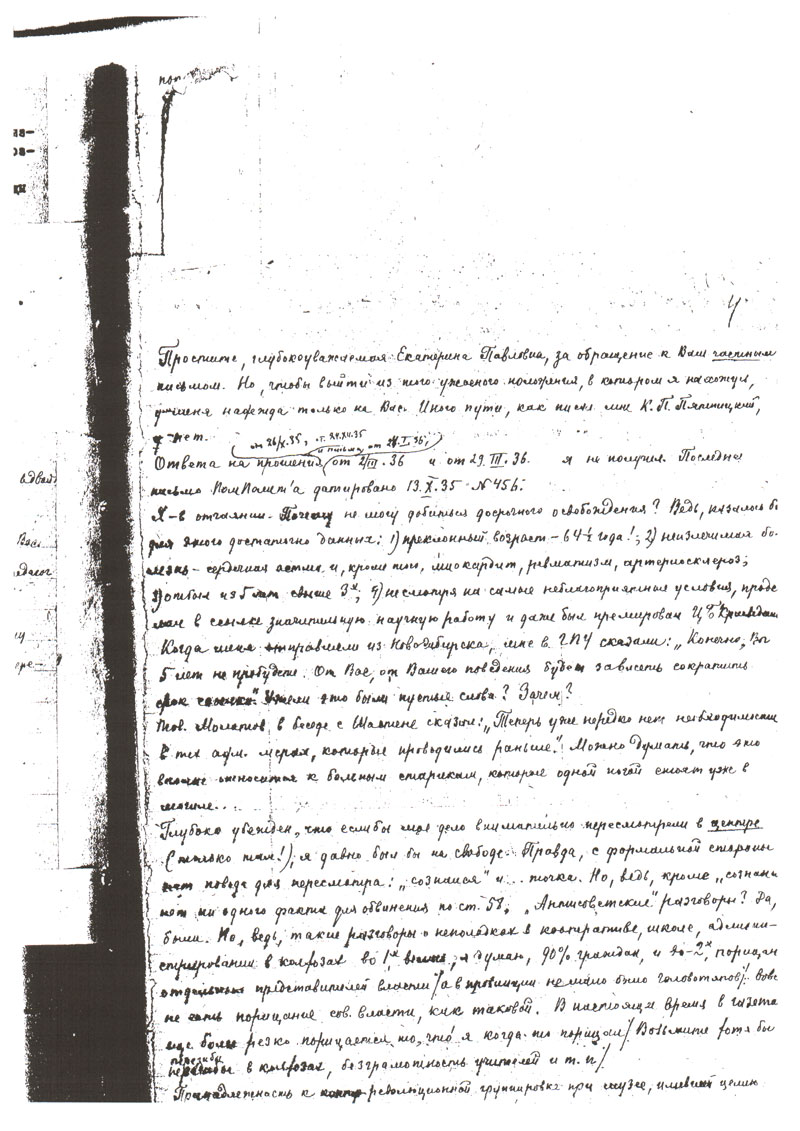 Простите, глубокоуважаемая Екатерина Павловна, за обращение к Вам частным
письмом. Но, чтобы выйти из того ужасного положения, в котором я нахожусь,
у меня надежда только на Вас. Иного пути, как писал мне К.П. Пятницкий,
нет.
от 26/X.35, от 24.XII.35
и письма от 28.I.36,
Ответа на прошения от 2/III.36 и от 29.III.36. я не получил. Последнее
письмо ПомПолит'а датировано 13.X.35 №456.
Я - в отчаянии. Почему не могу добиться досрочного освобождения? Ведь, казалось бы
для этого достаточно данных: 1) преклонный возраст - 64½ года!; 2) неизлечимая бо-
лезнь - сердечная астма и, кроме того, миокардит, ревматизм, артериосклероз;
3) отбыл из 5 лет свыше 3х; 4) несмотря на самые неблагоприятные условия, проде
лал в ссылке значительную научную работу и даже был премирован ЦБ Краеведен
Когда меня отправляли из Новосибирска, мне в ГПУ сказали: „Конечно, Вы
5 лет не пробудете. От Вас, от Вашего поведения будет зависеть сократить
срок ссылки". Ужели это были пустые слова? Зачем?
Тов. Молотов в беседе с Шастене сказал: „Теперь уже нередко нет необходимости
в тех адм. мерах, которые проводились раньше". Можно думать, что это
вполне относится к больным старикам, которые одной ногой стоят уже в
могиле...
Глубоко убежден, что если бы мое дело внимательно пересмотрели в центре
(только там!), я давно был бы на свободе. Правда, с формальной стороны
нет повода для пересмотра: „сознался" и... точка. Но, ведь, кроме „сознани
нет ни одного факта для обвинения по ст. 58. „Антисоветские" разговоры? Да,
были. Но, ведь, такие разговоры о неполадках в кооперативе, школе, админи-
стрировании в колхозах во 1х вели, я думаю, 90% граждан, и во-2х, порицан
отдельных представителей власти /а в провинции немало было головотяпов/ вовс
не есть порицание сов. власти, как таковой. В настоящее время в газета
еще более резко порицается то, что я когда-то порицал / Возьмите хотя бы
перегибы
в колхозах, безграмотность учителей и т.п./
Принадлежность к контр-революционной группировке при музее, имевшей целию